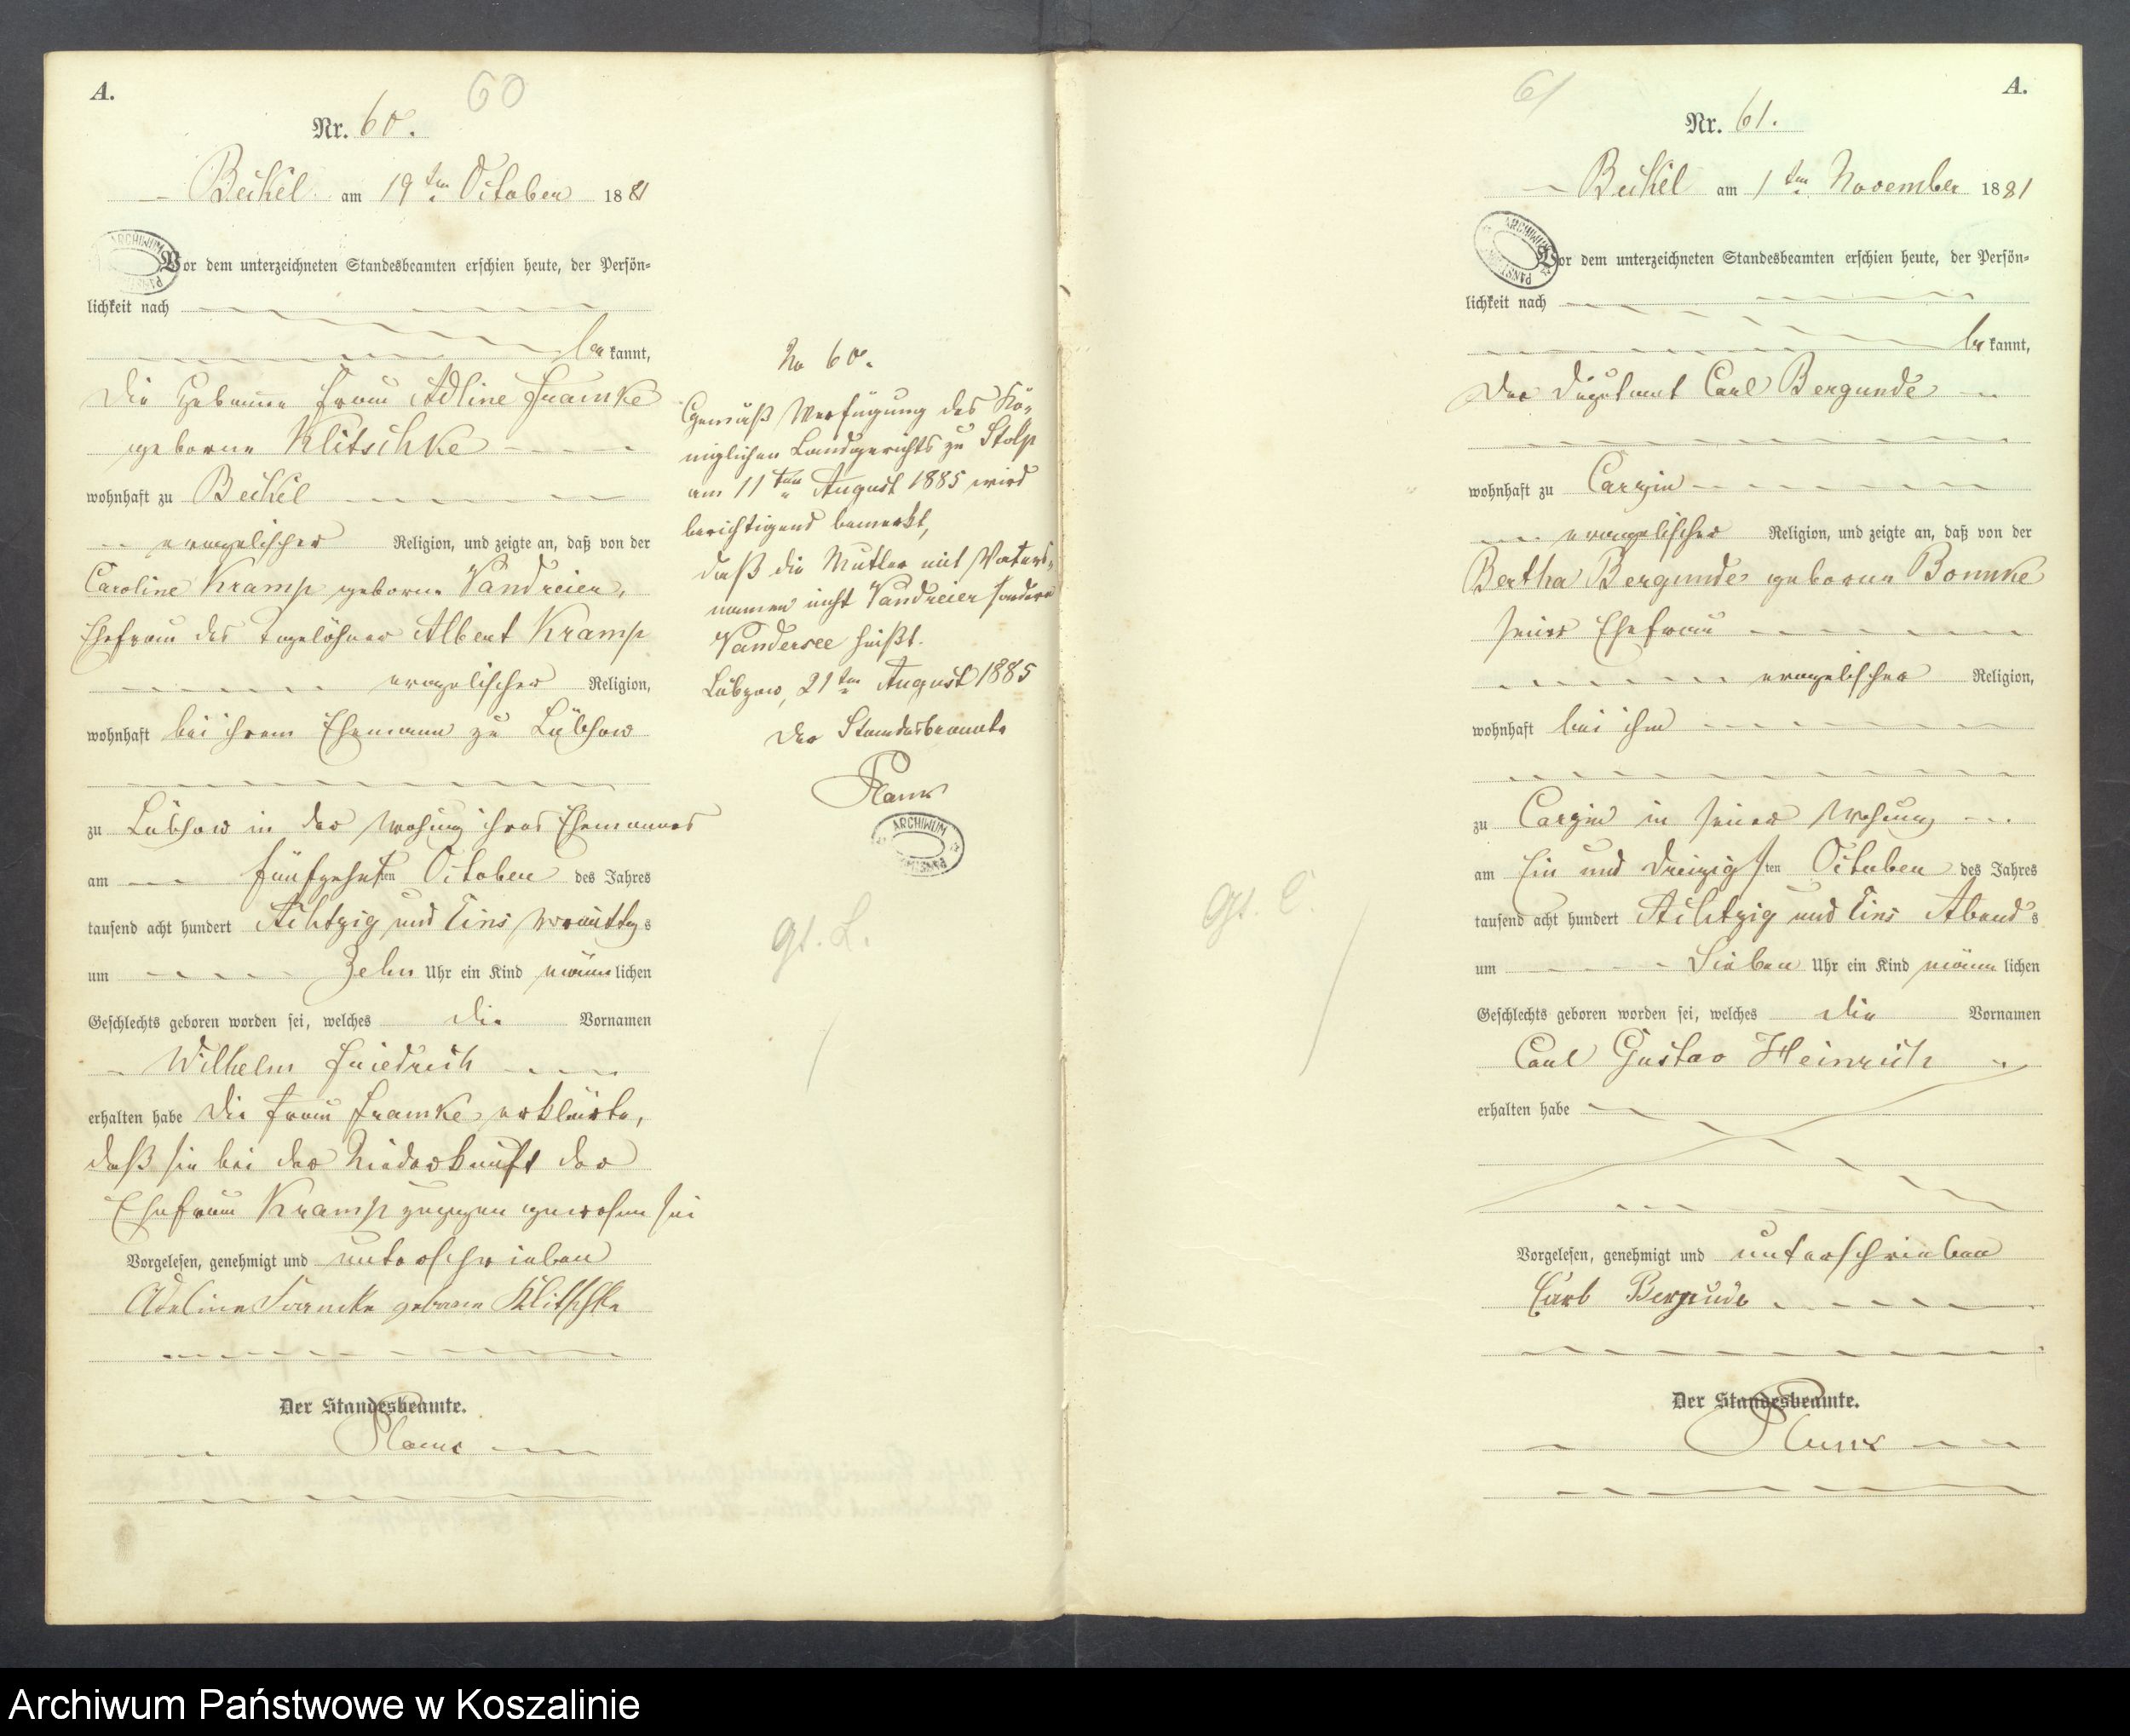 A.
60
Nr. 60.
Beckel am 19ten October 1881
ARCHIWUM
Vor dem unterzeichneten Standesbeamten erschien heute, der Persön-
lichkeit nach
be kannt,
die Hebamme Frau Adline Framke
geborne Klitschke
wohnhaft zu Beckel
evangelischer Religion, und zeigte an, daß von der
Caroline Kramp geborne Vandreier,
Ehefrau des Tagelöhner Albert Kramp
evangelischer Religion,
wohnhaft bei ihrem Ehemann zu Lübzow
zu Lübzow in der Wohung ihres Ehemannes
am fünfzehnten October des Jahres
tausend acht hundert Achtzig und Eins Vormittags
um Zehn Uhr ein Kind männlichen
Geschlechts geboren worden sei, welches die Vornamen
Wilhelm Friedrich
erhalten habe die Frau Framke erklärte,
daß sie bei der Niederkunft der
Ehefrau Kramp zugegen gewesen sei
Vorgelesen, genehmigt und unterschrieben
Adeline Framke geboren Klitschke
Der Standesbeamte.
No 60.
Gemäß Verfügung des Kö-
niglichen Landgerichts zu Stolp
am 11ten August 1885 wird
berichtigend bemerkt,
daß die Mutter mit Vaters-
namen nicht Vandreier sondern
Vandersee heißt.
Lübzow, 21ten August 1885
Der Standesbeamte
ARCHIWUM
gt. L.
61
A.
Nr. 61.
Beckel am 1ten November 1881
ARCHIWUM
Vor dem unterzeichneten Standesbeamten erschien heute, der Persön-
lichkeit nach
be kannt,
Der Deputant Carl Bergunde
wohnhaft zu Carzin
evangelischer Religion, und zeigte an, daß von der
Bertha Bergunde geborne Bonnke
seiner Ehefrau
evangelischer Religion,
wohnhaft bei ihm
zu Carzin in seiner Wohung
am Ein und dreizigsten October des Jahres
tausend acht hundert Achtzig und Eins Abends
um Sieben Uhr ein Kind männlichen
Geschlechts geboren worden sei, welches die Vornamen
Carl Gustav Heinrich
erhalten habe
Vorgelesen, genehmigt und unterschrieben
Carl Bergunde
Der Standesbeamte.
gt. C.
Archiwum Państwowe w Koszalinie